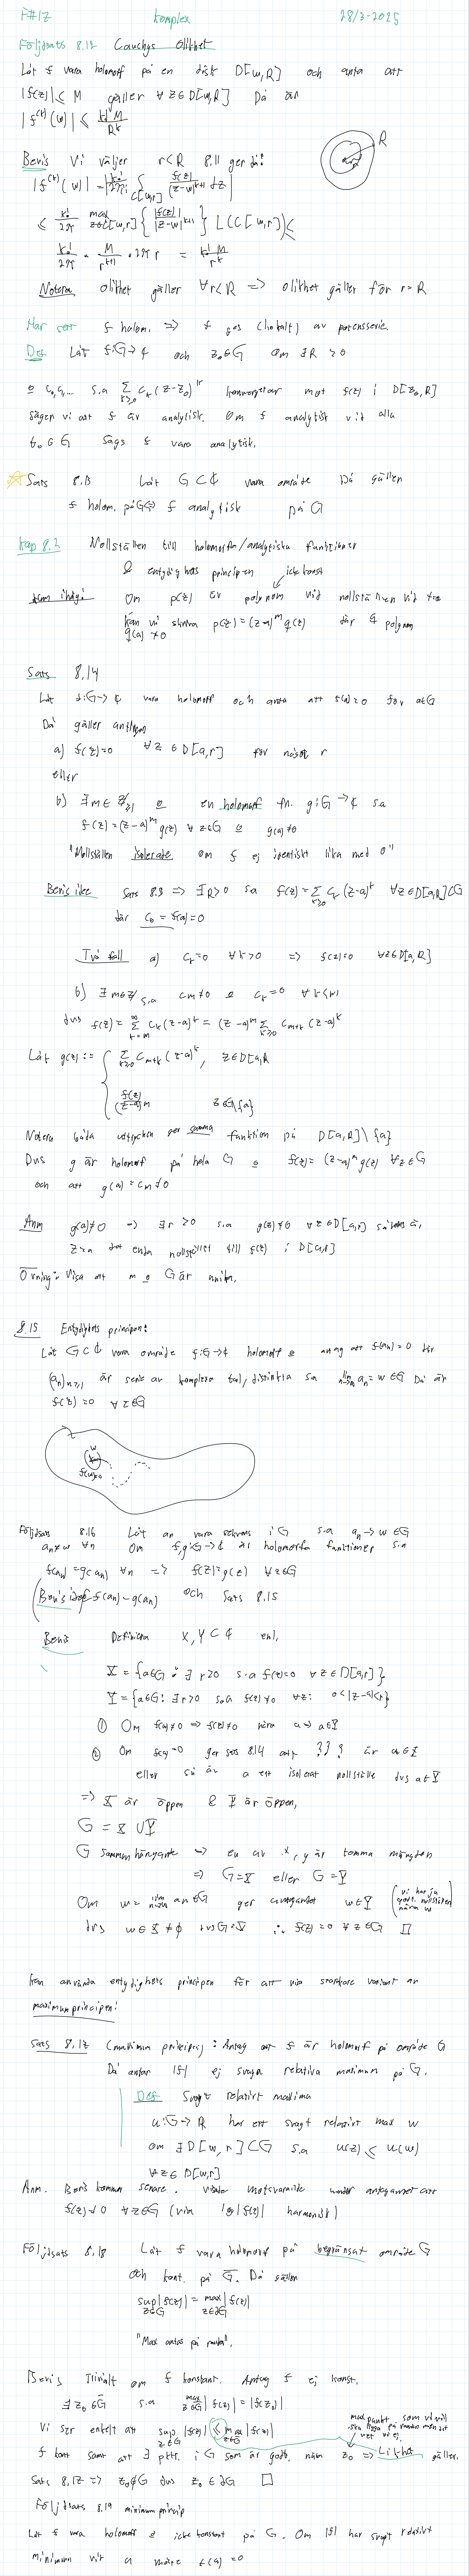 F#17 komplex 28/2-2025
Följdsats 8.12 Cauchys Olikhet
Låt f vara holomorf på en disk D[w,R] och anta att
|f(z)| ≤ M gäller ∀ z∈D[w,R] Då är
|f^(k)(w)| ≤ k! M / R^k
R
Bevis Vi väljer r<R 8.11 ger då!
|f^(k)(w)| = |k!/2πi ∫_C[w,r] f(z)/(z-w)^k+1 dz|
≤ k!/2π max_z∈C[w,r] { |f(z)|/|z-w|^k+1 } L(C[w,r]) ≤
k!/2π · M/r^k+1 · 2π r = k! M / r^k
Notera Olikhet gäller ∀r<R => Olikhet gäller för r=R
Har sett f holom. => f ges (lokalt) av potensserie.
Def Låt f:G→ℂ och z₀∈G Om ∃R>0
& c₀,c₁... s.a Σ_k≥0 c_k (z-z₀)^k konvergerar mot f(z) i D[z₀,R]
säger vi att f är analytisk. Om f analytisk vid alla
z₀∈G sägs f vara analytisk.
Sats 8.13 Låt G⊂ℂ vara område Då gäller
f holom. på G⇔ f analytisk på G
Kap 8.2 Nollställen till holomorfa/analytiska funktioner
& entydighets principen
icke konst
Kom ihåg! Om p(z) är polynom vid nollställen vid z=a
kan vi skriva p(z)=(z-a)^m q(z) där q polynom
q(a)≠0
Sats 8.14
Låt f:G→ℂ vara holomorf och anta att f(a)=0 för a∈G
Då gäller antingen
a) f(z)=0 ∀z∈D[a,r] för något r
eller
b) ∃m∈ℤ≥1 & en holomorf fn. g:G→ℂ sa
f(z)=(z-a)^m g(z) ∀z∈G & g(a)≠0
"Nollställen isolerade om f ej identiskt lika med 0"
Bevis idee Sats 8.8 => ∃R>0 sa f(z)=Σ_k≥0 c_k (z-a)^k ∀z∈D[a,R]⊂G
där c₀ = f(a)=0
Två fall a) c_k=0 ∀k>0 => f(z)=0 ∀z∈D[a,R]
b) ∃m∈ℤ s.a c_m≠0 & c_k=0 ∀k<m
dvs f(z)= Σ_k=m^∞ c_k(z-a)^k = (z-a)^m Σ_k≥0 c_m+k (z-a)^k
Låt g(z):= { Σ_k≥0 c_m+k (z-a)^k, z∈D[a,R]
f(z)/(z-a)^m z∈G\{a}
Notera båda uttrycken ger samma funktion på D[a,R]\{a}
Dvs g är holomorf på hela G & f(z)=(z-a)^m g(z) ∀z∈G
och att g(a)=c_m≠0
Anm g(a)≠0 => ∃r>0 s.a g(z)≠0 ∀z∈D[a,r] således är
z=a det enda nollstället till f(z) i D[a,r]
Övning: Visa att m & G är unika.
8.15 Entydighets principen:
Låt G⊂ℂ vara område f:G→ℂ holomorf & antag att f(a_n)=0 där
(a_n)_n≥1 är serie av komplexa tal, distinkta sa lim_n→∞ a_n=w∈G Då är
f(z)=0 ∀z∈G
w
f(w)=0
Följdsats 8.16 Låt an vara sekvens i G s.a a_n→w∈G
a_n≠w ∀n Om f,g:G→ℂ är holomorfa funktioner s.a
f(a_n)=g(a_n) ∀n => f(z)=g(z) ∀z∈G
(Bevis f(an)-g(an) och Sats 8.15
Bevis Definiera X,Y⊂ℂ enl,
X={a∈G: ∃ r>0 s.a f(z)=0 ∀z∈D[a,r]}
Y={a∈G: ∃r>0 s.a f(z)≠0 ∀z: 0<|z-a|<r}
① Om f(a)≠0 => f(z)≠0 nära a => a∈Y
② Om f(a)=0 ger sats 8.14 att är a∈X
eller så är a ett isolerat nollställe dvs a∈Y
=> X är öppen & Y är öppen,
G=X∪Y
G sammanhängande => en av x,y är tomma mängden
=> G=X eller G=Y
Om w=lim_n→∞ an∈G ger w∉Y (vi har ju godt. nollställen nära w)
dvs w∈X≠∅ dvs G=X ∴ f(z)=0 ∀z∈G □
Kan använda entydighets principen för att visa starkare variant av
maximumprincipen!
Sats 8.17 (maximum princip): Antag att f är holomorf på område G
Då antar |f| ej svaga relativa maximum på G.
Def Svagt relativt maxima
u:G→ℝ har ett svagt relativt max w
om ∃D[w,r]⊂G s.a u(z)≤u(w)
∀z∈D[w,r]
Anm. Bevis kommer senare. visade motsvarande under antagandet att
f(z)≠0 ∀z∈G (via log|f(z)| harmonisk)
Följdsats 8.18 Låt f vara holomorf på begränsat område G
och kont. på G̅. Då gäller
sup_z∈G |f(z)| = max_z∈∂G |f(z)|
"Max antas på randen".
Bevis Trivialt om f konstant. Antag f ej konst.
∃z₀∈G̅ s.a max_z∈G̅ |f(z)|=|f(z₀)|
max punkt som vi vill ska ligga på randen men det vet vi ej.
Vi ser enkelt att sup_z∈G |f(z)| ≤ max_z∈G̅ |f(z)|
f kont samt att ∃ pktr. i G som är godt. nära z₀ => Likhet gäller.
Sats 8.17 => z₀∉G dvs z₀∈∂G □
Följdsats 8.19 minimumprincip
Låt f vara holomorf & icke konstant på G. Om |f| har svagt relativt
minimum vid a måste f(a)=0